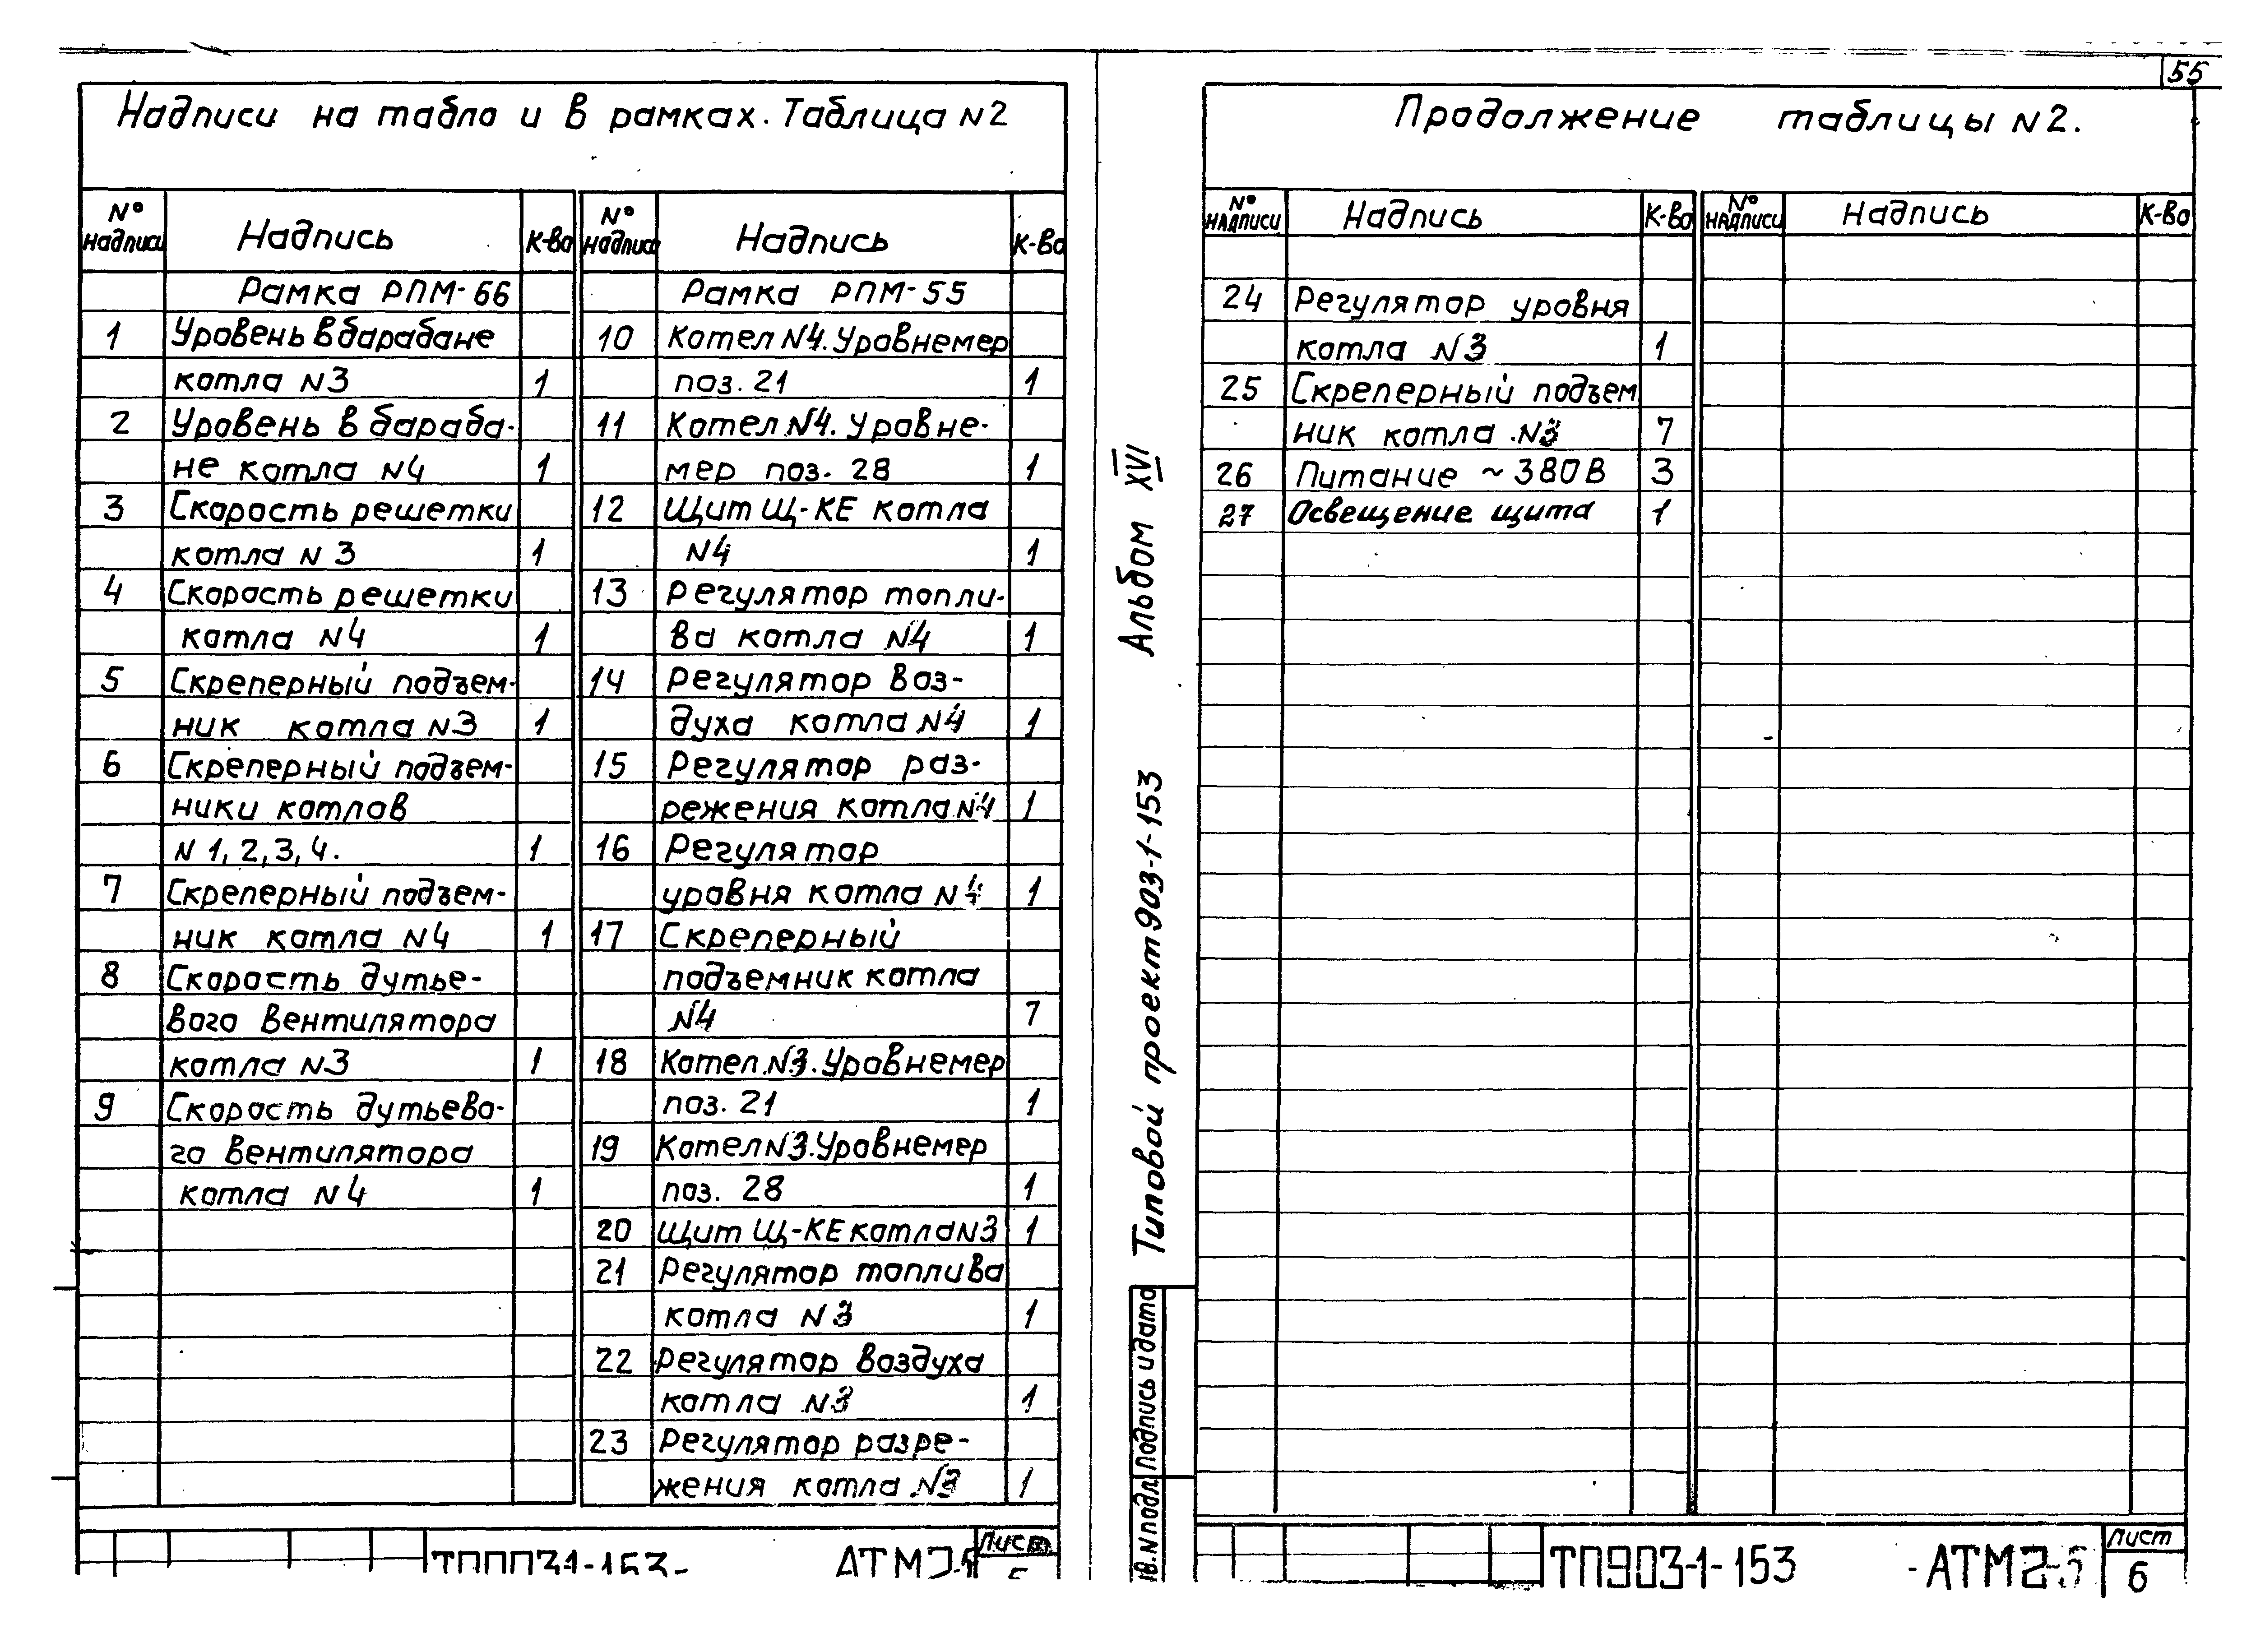 55
Надписи на табло и в рамках. Таблица N2
N° надписи Надпись К-во
Рамка РПМ-66
1 Уровень в барабане
котла N3 1
2 Уровень в бараба-
не котла N4 1
3 Скорость решетки
котла N3 1
4 Скорость решетки
котла N4 1
5 Скреперный подъем-
ник котла N3 1
6 Скреперный подъем-
ники котлов
N 1, 2, 3, 4. 1
7 Скреперный подъем-
ник котла N4 1
8 Скорость дутье-
вого вентилятора
котла N3 1
9 Скорость дутьево-
го вентилятора
котла N4 1
N° надписи Надпись К-во
Рамка РПМ-55
10 Котел N4. Уровнемер
поз. 21 1
11 Котел N4. Уровне-
мер поз. 28 1
12 Щит Щ-КЕ котла
N4 1
13 Регулятор топли-
ва котла N4 1
14 Регулятор воз-
духа котла N4 1
15 Регулятор раз-
режения котла N4 1
16 Регулятор
уровня котла N4 1
17 Скреперный
подъемник котла
N4 7
18 Котел N3. Уровнемер
поз. 21 1
19 Котел N3. Уровнемер
поз. 28 1
20 Щит Щ-КЕ котла N3 1
21 Регулятор топлива
котла N3 1
22 Регулятор воздуха
котла N3 1
23 Регулятор разре-
жения котла N3 1
Лист
Типовой проект 903-1-153 Альбом XVI
Подпись и дата
N подл.
Продолжение таблицы N2.
N° надписи Надпись К-во N° надписи Надпись К-во
24 Регулятор уровня
котла N3 1
25 Скреперный подъем
ник котла N3 7
26 Питание ~380В 3
27 Освещение щита 1
ТП903-1-153 -АТМ2-5
Лист
6